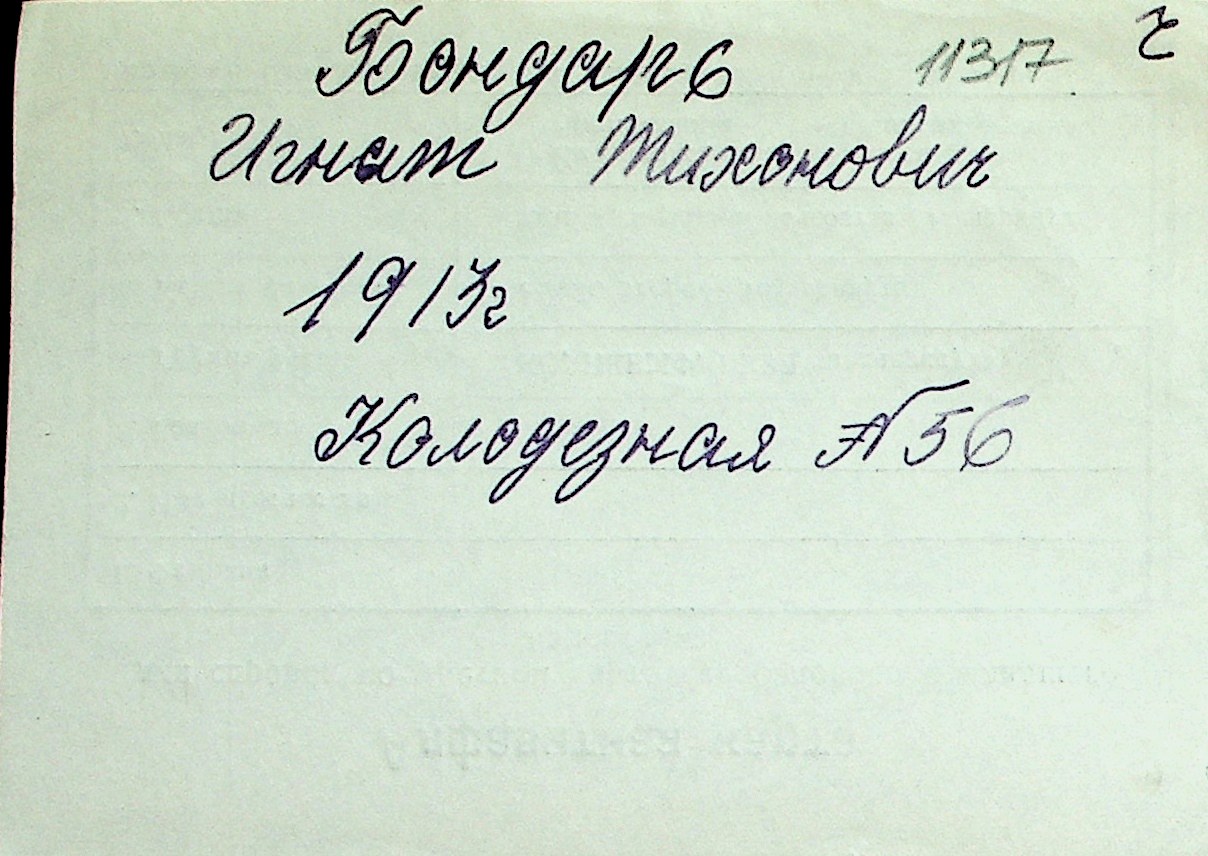 Бондарь 11317 г
Игнат Тихонович
1913г
Колодезная №56